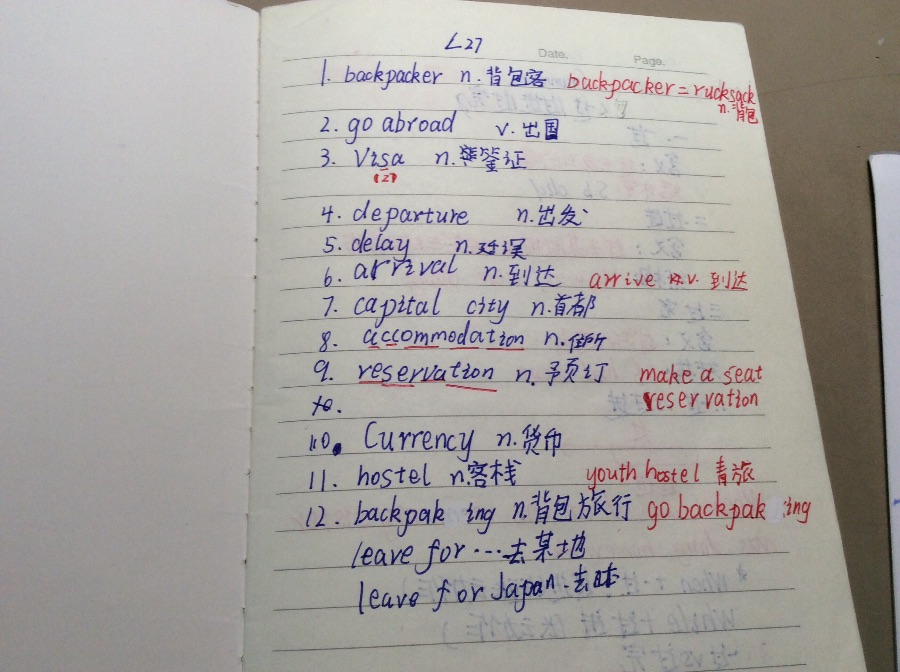 L27
Date. Page.
1. backpacker n. 背包客 backpacker = rucksack
n. 背包
2. go abroad v. 出国
3. Visa n. 签证
(2)
4. departure n. 出发
5. delay n. 延误
6. arrival n. 到达 arrive v. 到达
7. capital city n. 首都
8. accommodation n. 住所
9. reservation n. 予页订 make a seat
reservation
10.
10. Currency n. 货币
11. hostel n. 客栈 youth hostel 青旅
12. backpak ing n. 背包旅行 go backpak ing
leave for ... 去某地
leave for Japan. 去日本